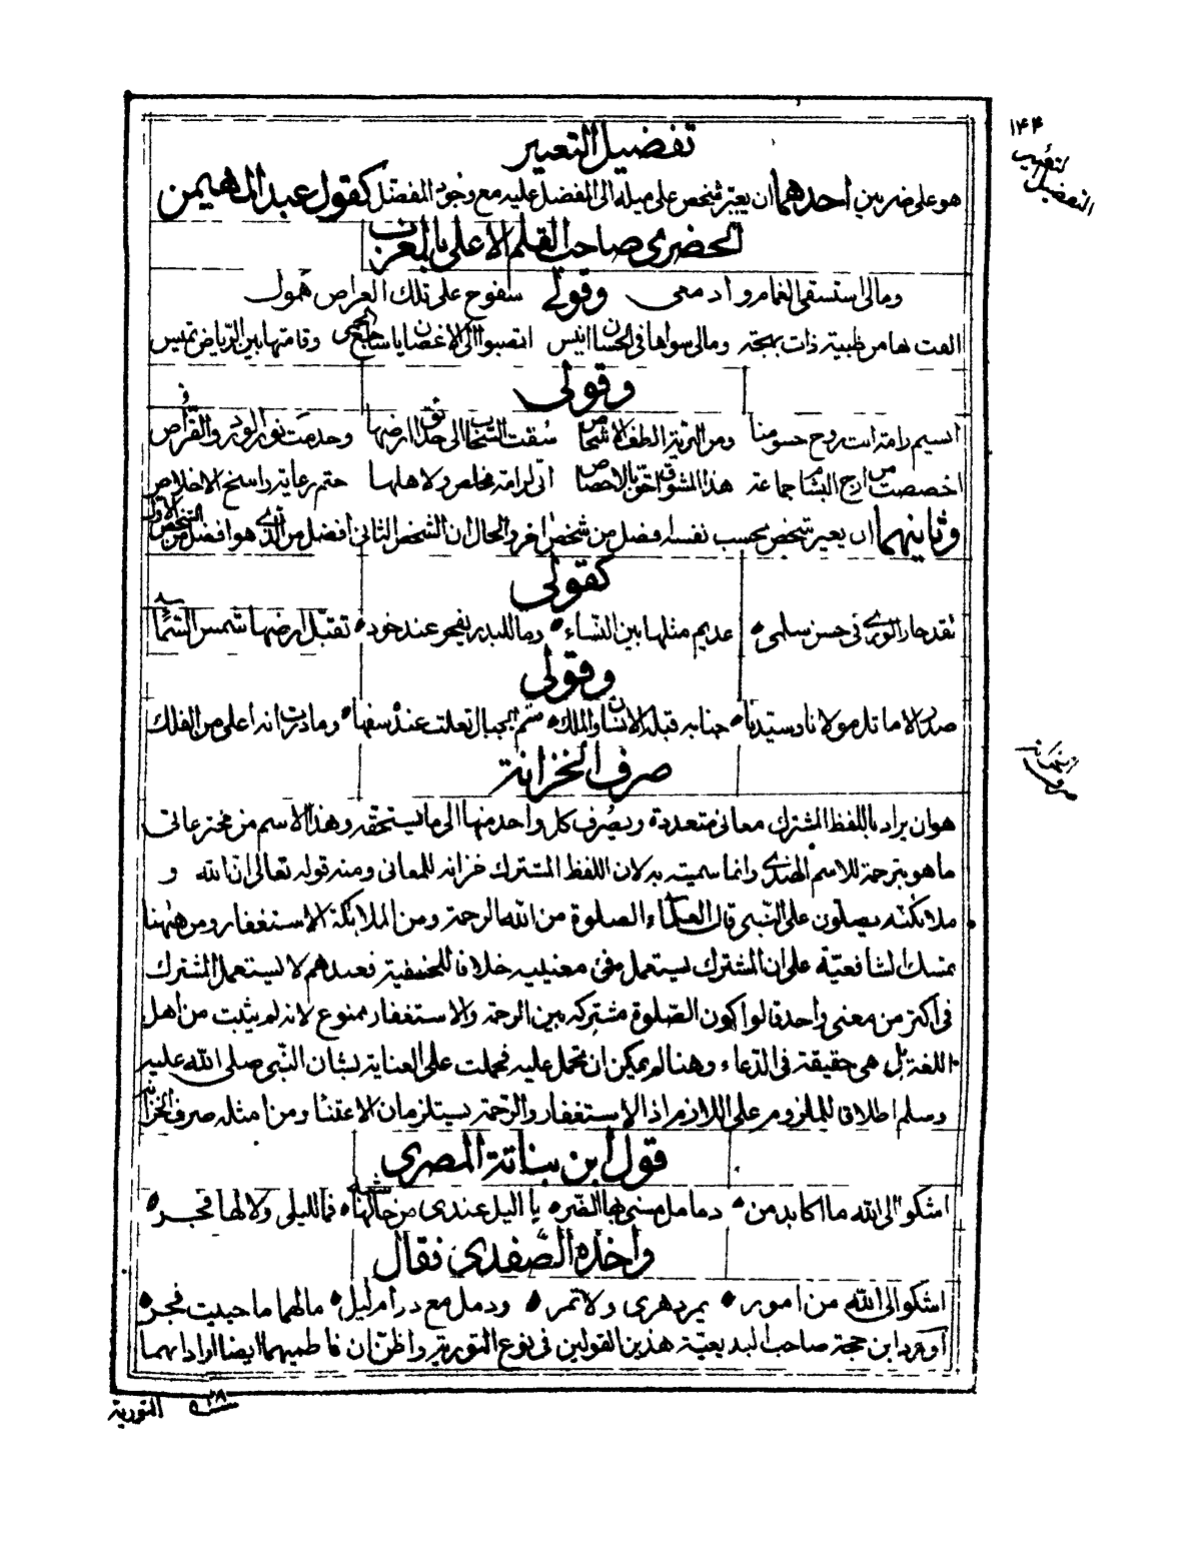 ١٤٤
تفضيل التعيير
هو على ضربين احدهما ان يعيّر شخص على ميله الى المفضل عليه مع وجود المفضّل كقول عبد المهيمن
الحضرمى صاحب القلم الاعلى بالمغرب
ومالى استسقى الغمام وادمعى سفوح على تلك العراص همول وقولى
الفت هامن ظبية ذات بهجة ومالى سواها فى الحسان انيس انتصبوا الى الاغصان يا ساجع الحمى وقامتها بين الرياض تميس
وقولى
انسيم رامة انت روح جسومنا ومن البرية الطف الاشخاص سقت السحاب الى حدائق ارضها وخدمت نور الورد والقرّاص
اخصصت من ارج البشام جماعة هذا المشوق احق بالاخصاص انى لرامة مخلص ولاهلها حتم رعاية راسخ الاخلاص
وثانيهما ان يعير شخص بحسب نفسه افضل من شخص اخر والحال ان الشخص الثانى افضل من الذى هو افضل من الشخص الاول
كقولى
لقد حار الورى فى حسن سلمى عديم مثلها بين النساء وما للبدر يفجر عند خود تقبّل ارضها شمس السماء
وقولى
صدر الاماثل مولانا وسيدنا جنابه قبلة الانسان والملك شم الجبال تعلت عند سفها وما درت انه اعلى من الفلك
صرف الخزانة
هو ان يراد باللفظ المشترك معانى متعددة ويصرف كل واحد منها الى ما يستحقه وهذا الاسم من مخترعاتى
ما هو بترجمة للاسم الهندى وانما سميته به لان اللفظ المشترك خزانة للمعانى ومنه قوله تعالى ان الله و
ملائكته يصلون على النبى قال العلماء الصلوة من الله الرحمة ومن الملائكة الاستغفار ومن ههنا
تمسك الشافعيّة على ان المشترك يستعمل فى معنييه خلافا للحنفية فعندهم لا يستعمل المشترك
فى اكثر من معنى واحد قالوا كون الصّلوة مشتركة بين الرحمة والاستغفار ممنوع لانه لم يثبت من اهل
اللغة بل هى حقيقة فى الدّعاء وهنا لم يمكن ان تحمل عليه فحملت على العناية بشان النّبى صلى الله عليه
وسلم اطلاقا للملزوم على اللازم اذ الاستغفار والرّحمة يستلزمان الاعتناء ومن امثلة صرف الخزانة
قول ابن نباتة المصرى
اشكو الى الله ما اكابد من دمامل مسنى بها الضر يا اليل عندى من حالها شبه فما لليلى ولا لها فجر
واخذه الصّفدى فقال
اشكو الى الله من امور يمر دهرى ولا تمر ودمل مع دوام ليل مالهما ما حييت فجر
اورد ابن حجة صاحب البديعيّة هذين القولين فى نوع التورية واظنّ ان ناظميهما ايضا ارادا بهما
التورية
٢٨
صرف الخزانة